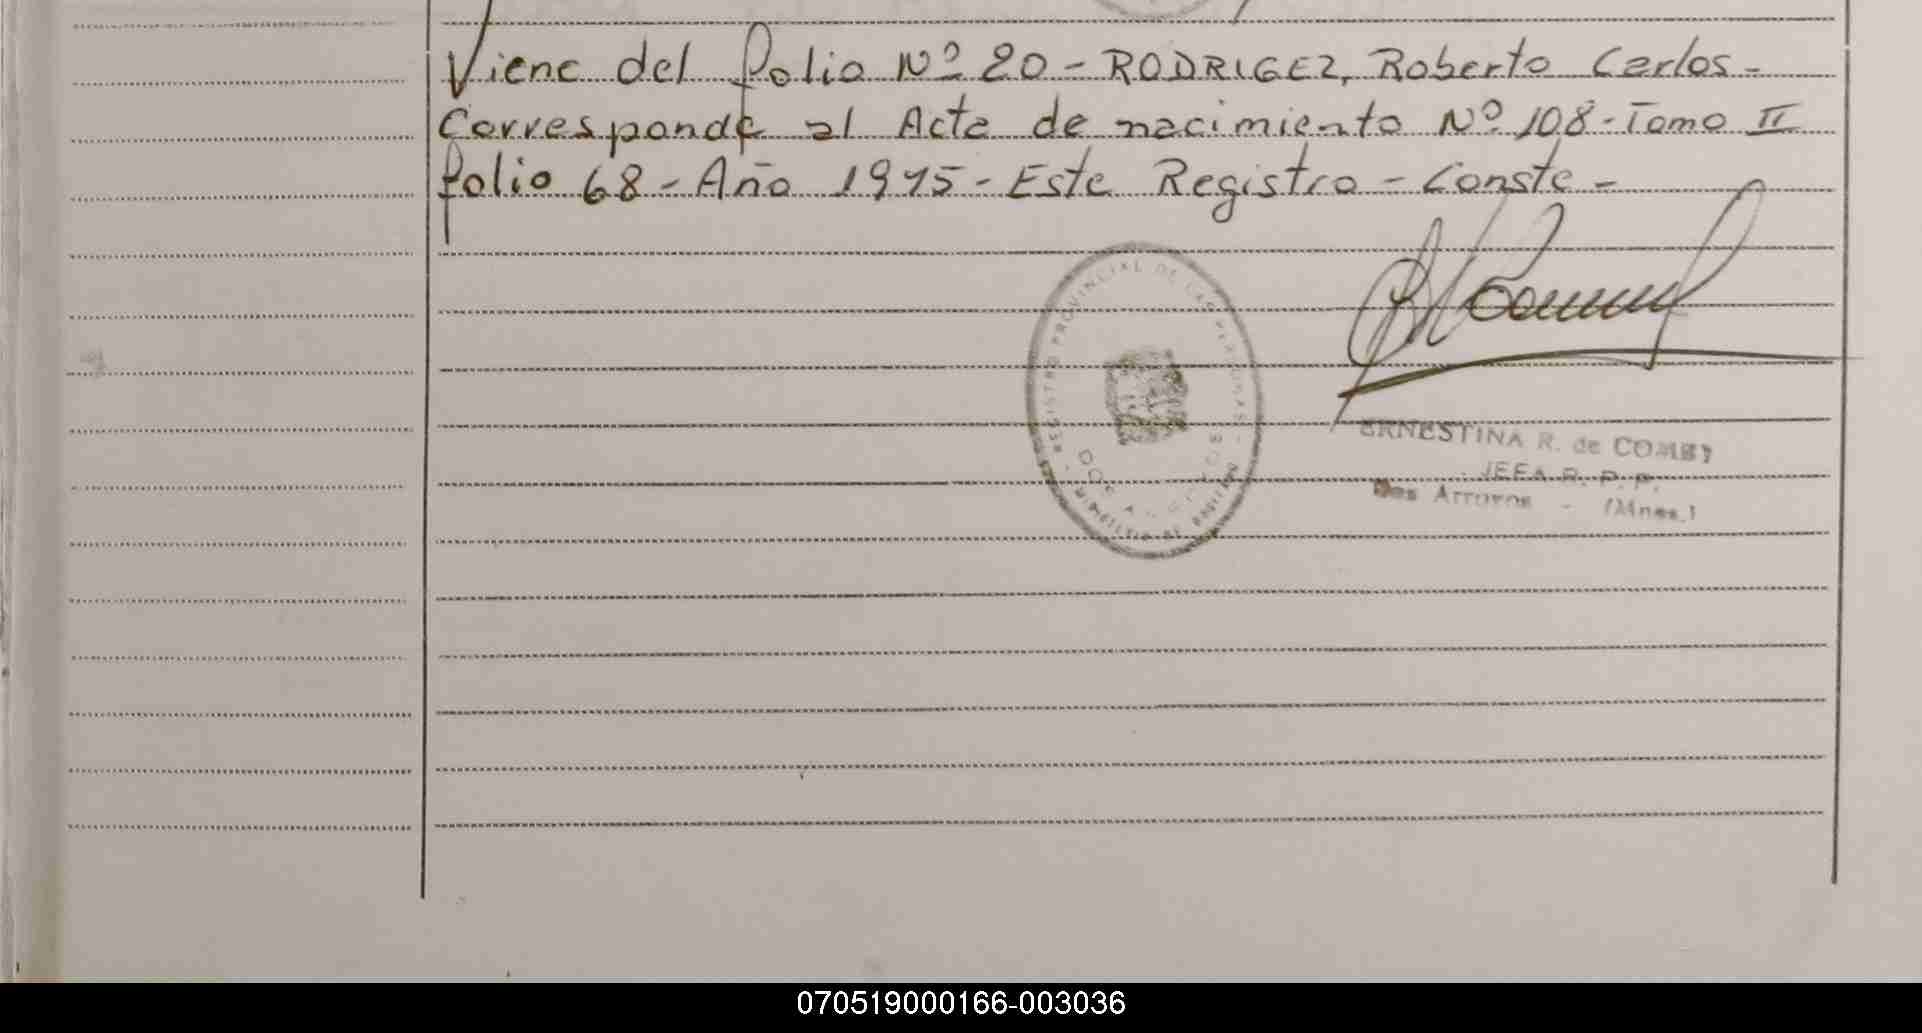 Viene del folio Nº 20 - RODRIGEZ, Roberto Carlos -
Corresponde al Acta de nacimiento Nº 108 - Tomo II
folio 68 - Año 1975 - Este Registro - Conste -
REGISTRO PROVINCIAL DE LAS PERSONAS
DOS ARROYOS
ERNESTINA R. de COMBY
JEFA R. P. P.
Dos Arroyos - (Mnes.)
070519000166-003036